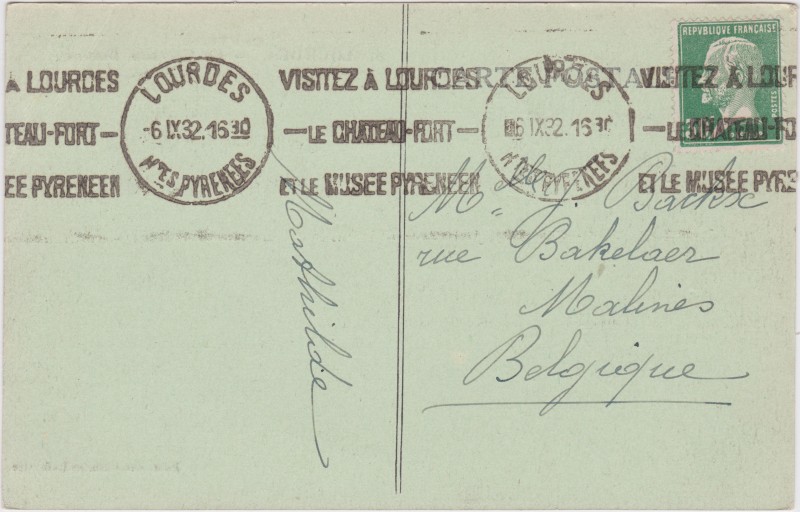 CARTE POSTALE
REPVBLIQVE FRANÇAISE
POSTES
À LOURDES
TEAU-FORT
EE PYRENEEN
LOURDES
-6 IX.32.1630
Htes PYRENEES
VISITEZ À LOURDES
LE CHATEAU-FORT
ET LE MUSEE PYRENEEN
LOURDES
6 IX.32.1630
Htes PYRENEES
VISITEZ À LOUR
LE CHATEAU-FO
ET LE MUSEE PYRE
Mathilde
J. Backx
rue Bakelaer
Malines
Belgique